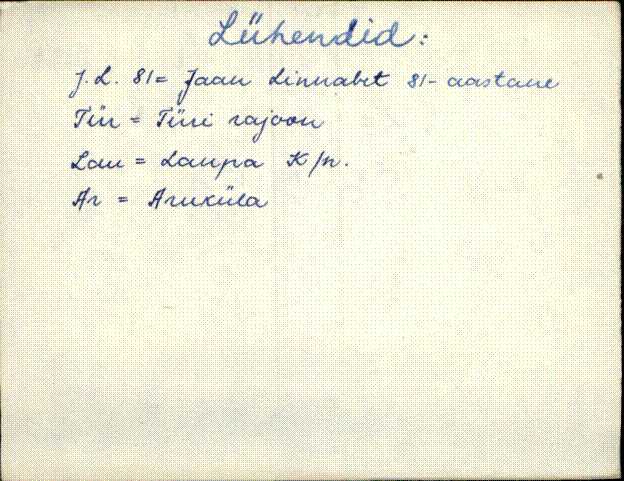 Lühendid:
J. L. 81 = Jaan Linnabet 81-aastane
Tür = Türi rajoon
Lau = Laupa K/n.
Ar = Aruküla